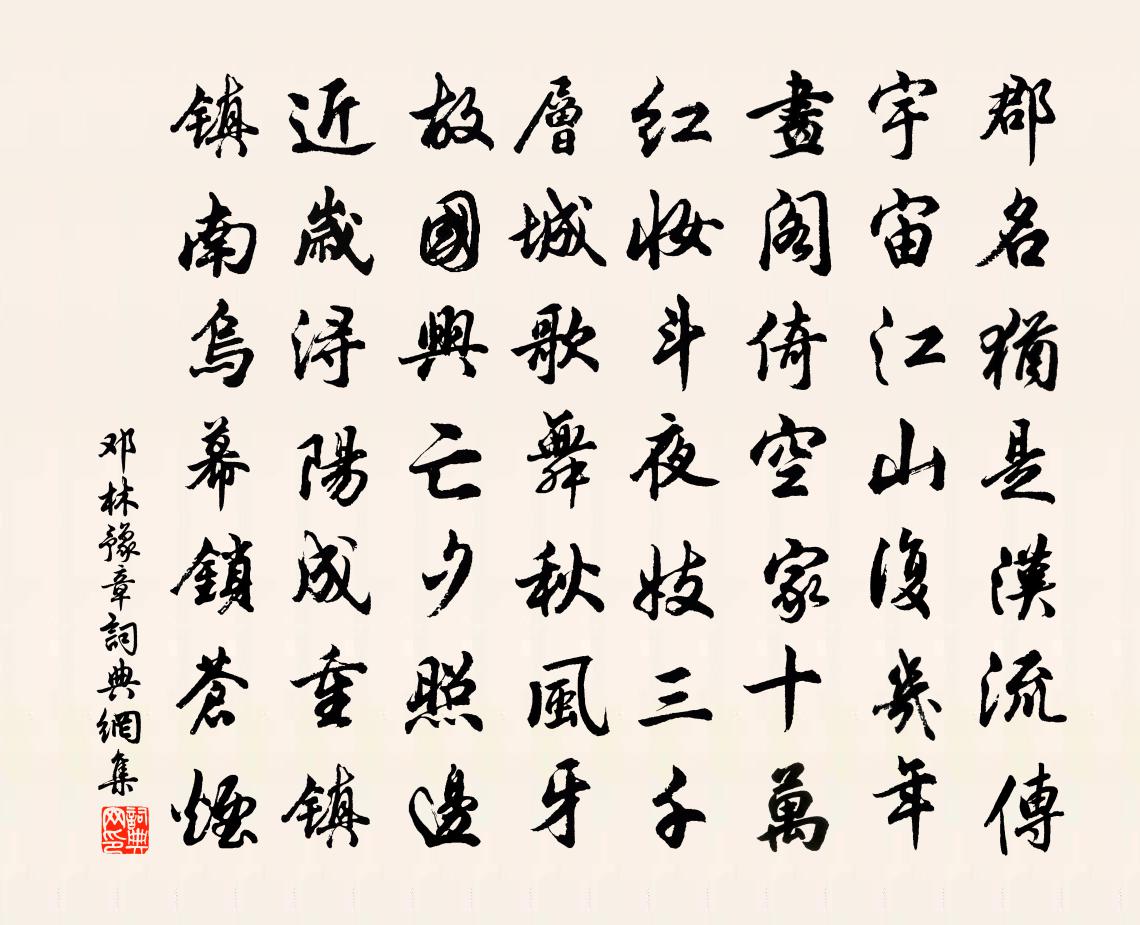 郡名猶是漢流傳
宇宙江山復幾年
畫閣倚空家十萬
紅妝斗夜妓三千
層城歌舞秋風牙
故國興亡夕照邊
近歲潯陽成重鎮
鎮南烏幕鎖蒼煙
邓林豫章詞典網集
詞典网印